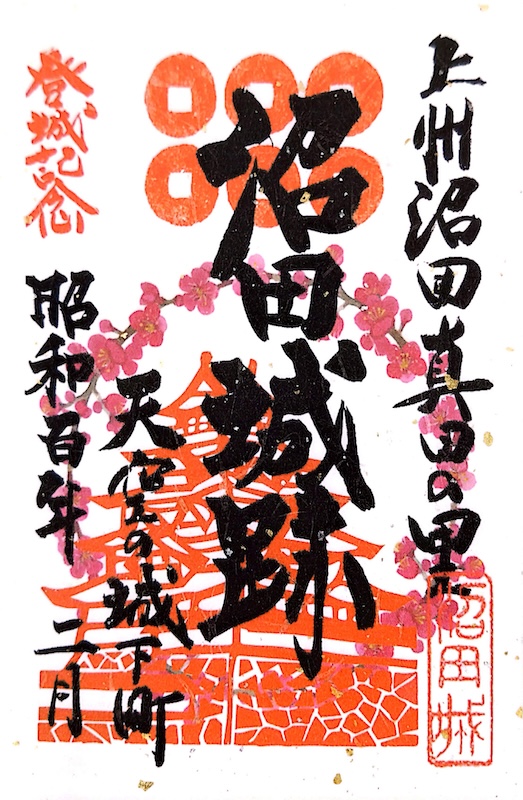 上州沼田真田の里
沼田城
沼田城跡
天空の城下町
登城記念
昭和百年 二月